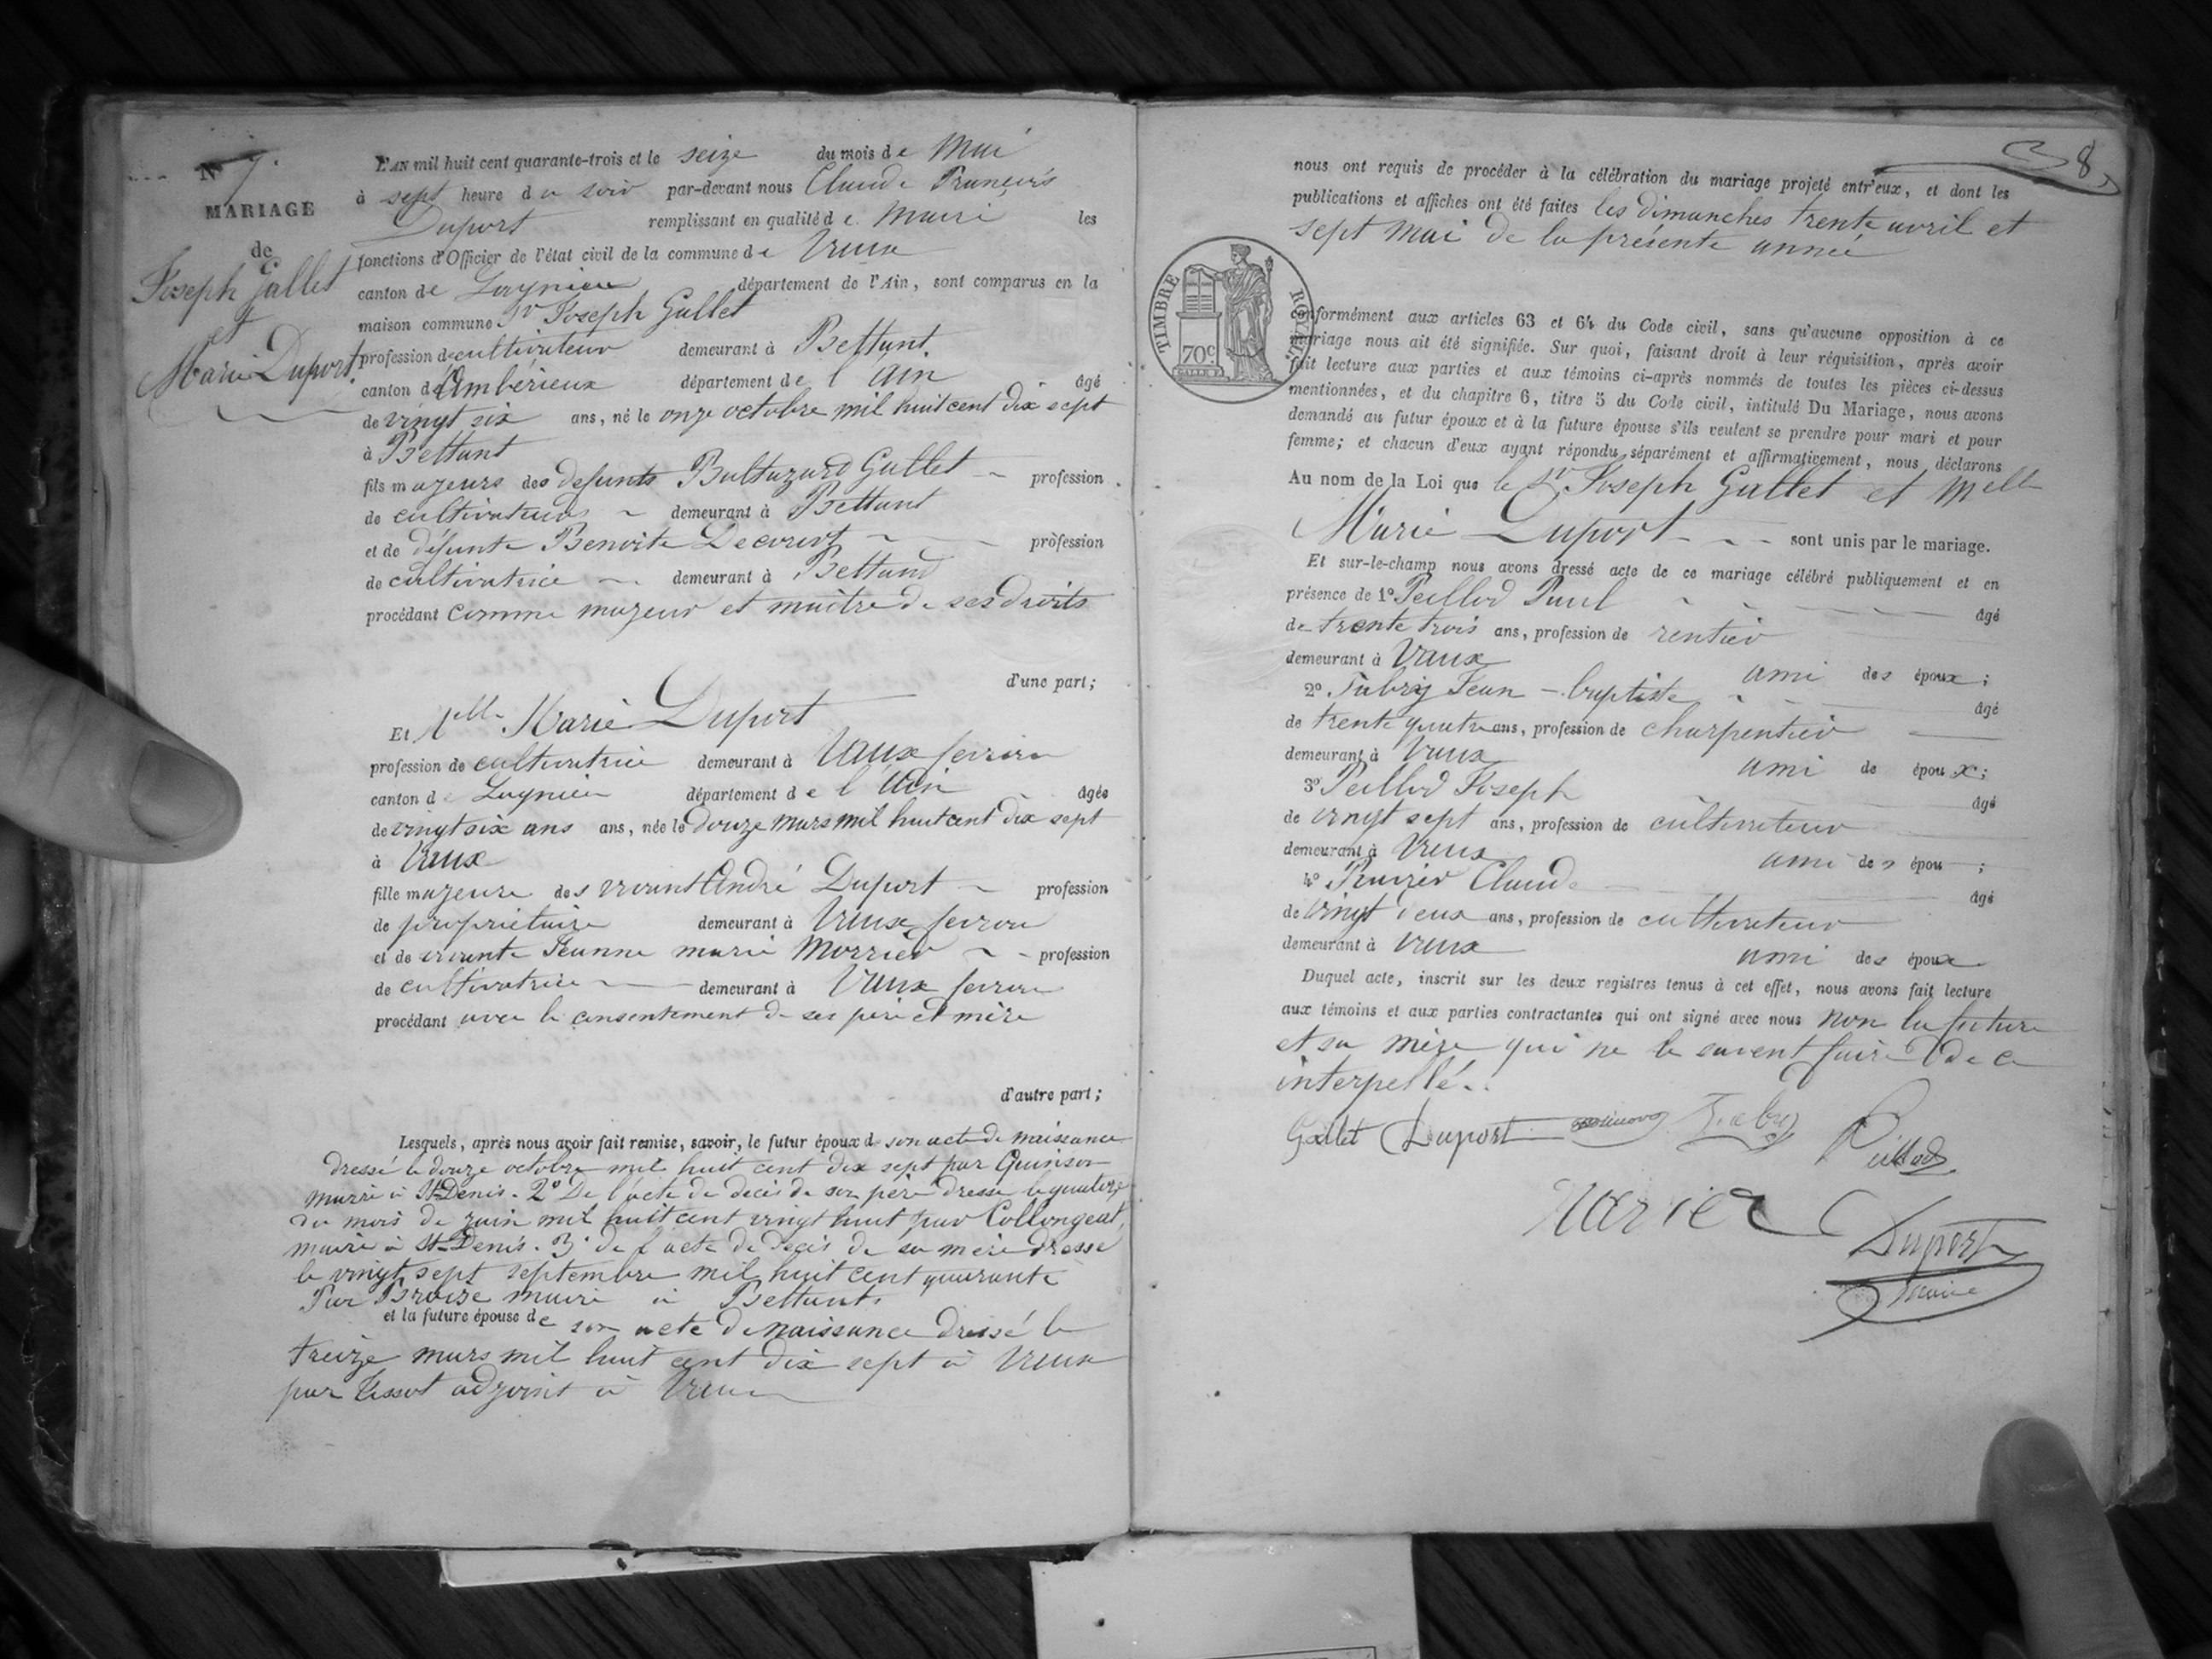 N 7.
MARIAGE
de
Joseph Gallet
et
Marie Duport
L'AN mil huit cent quarante-trois et le seize du mois de Mai
à sept heure du soir par-devant nous Claude François
Duport remplissant en qualité de Maire les
fonctions d'Officier de l'état civil de la commune de Vaux
canton de Lagnieu département de l'Ain, sont comparus en la
maison commune Sr Joseph Gallet
profession de cultivateur demeurant à Bettant
canton d'Ambérieux département de l'Ain âgé
de vingt six ans, né le onze octobre mil huit cent dix sept
à Bettant
fils majeurs des defunts Baltazard Gallet profession
de cultivateurs demeurant à Bettant
et de défunte Benoite profession
de cultivatrice demeurant à Bettand
procédant comme majeur et maître de ses droits
d'une part;
Et Melle Marie Duport
profession de cultivatrice demeurant à Vaux
canton de Lagnieu département de l'Ain âgée
de vingt six ans ans, née le douze mars mil huit cent dix sept
à Vaux
fille majeure des vivant André Duport profession
de propriétaire demeurant à Vaux
et de vivante Jeanne marie Morrier profession
de cultivatrice demeurant à Vaux
procédant avec le consentement de ses père et mère
d'autre part;
Lesquels, après nous avoir fait remise, savoir, le futur époux de son acte de naissance
dressé le douze octobre mil huit cent dix sept par Quinson
maire à St Denis. 2º De l'acte de décès de son père dressé le quatorze
du mois de juin mil huit cent vingt huit par Collongeat,
maire à St Denis. 3º de l'acte de décès de sa mère dressé
le vingt sept septembre mil huit cent quarante
Par maire à Bettant.
et la future épouse de son acte de naissance dressé le
treize mars mil huit cent dix sept à Vaux
par Tissot adjoint à Vaux
8
nous ont requis de procéder à la célébration du mariage projeté entr'eux, et dont les
publications et affiches ont été faites les dimanches trente avril et
sept mai de la présente année
TIMBRE ROYAL.
70c.
conformément aux articles 63 et 64 du Code civil, sans qu'aucune opposition à ce
mariage nous ait été signifiée. Sur quoi, faisant droit à leur réquisition, après avoir
fait lecture aux parties et aux témoins ci-après nommés de toutes les pièces ci-dessus
mentionnées, et du chapitre 6, titre 5 du Code civil, intitulé Du Mariage, nous avons
demandé au futur époux et à la future épouse s'ils veulent se prendre pour mari et pour
femme; et chacun d'eux ayant répondu séparément et affirmativement, nous déclarons
Au nom de la Loi que le Sr Joseph Gallet et Melle
Marie Duport sont unis par le mariage.
Et sur-le-champ nous avons dressé acte de ce mariage célébré publiquement et en
présence de 1º Peillod Paul âgé
de trente trois ans, profession de rentier
demeurant à Vaux ami des époux;
2º Fabry Jean-baptiste âgé
de trente quatre ans, profession de charpentier
demeurant à Vaux ami de époux;
3º Peillod Joseph âgé
de vingt sept ans, profession de cultivateur
demeurant à Vaux ami des épou;
4º Claude âgé
de vingt deux ans, profession de cultivateur
demeurant à Vaux ami des époux
Duquel acte, inscrit sur les deux registres tenus à cet effet, nous avons fait lecture
aux témoins et aux parties contractantes qui ont signé avec nous non la future
et sa mère qui ne le savent faire de ce
interpellé.
Gallet Duport Fabry Peillod
Duport
maire